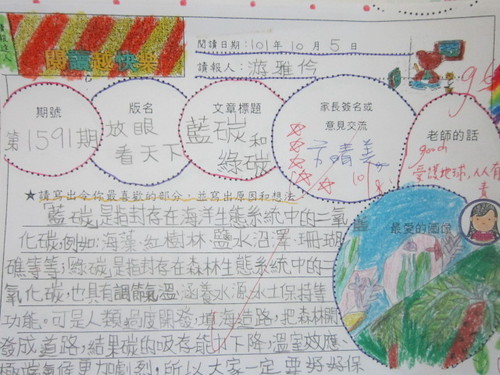 閱讀越快樂
閱讀日期：101年10月5日
讀報人：游雅伶
期號
第1591期
版名
放眼
看天下
文章標題
藍碳和
綠碳
家長簽名或
意見交流
老師的話
good
愛護地球,人人有
★請寫出令你最喜歡的部分，並寫出原因和想法
最愛的圖
藍碳是指封存在海洋生態系統中的二氧
化碳,例如:海藻.紅樹林.鹽水沼澤.珊瑚
礁等等;綠碳是指封存在森林生態系統中的二
氧化碳,也具有調節氣溫.涵養水源.水土保持等
功能。可是人類過度開發,填海造路,把森林開
發成道路,結果碳的吸存能力下降,溫室效應、
極端氣候更加劇烈,所以大家一定要好好保